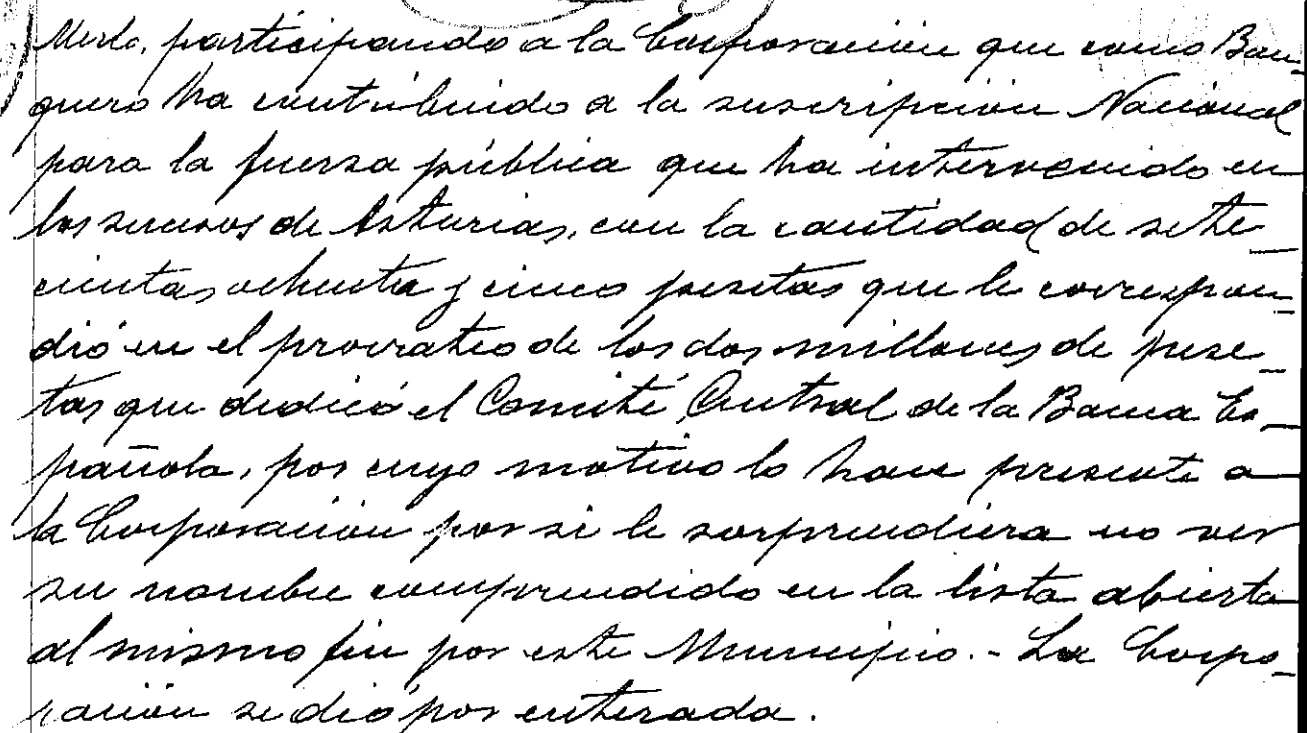 Merlo, participando a la Corporación que como Ban-
quero ha contribuido a la suscripción Nacional
para la fuerza pública que ha intervenido en
los sucesos de Asturias, con la cantidad de sete-
cientas ochenta y cinco pesetas que le correspon-
dió en el prorrateo de los dos millones de pese-
tas que dedicó el Comité Central de la Banca Es-
pañola, por cuyo motivo lo hace presente a
la Corporación por si le sorprendiera no ver
su nombre comprendido en la lista abierta
al mismo fin por este Municipio.- La Corpo-
ración se dió por enterada.